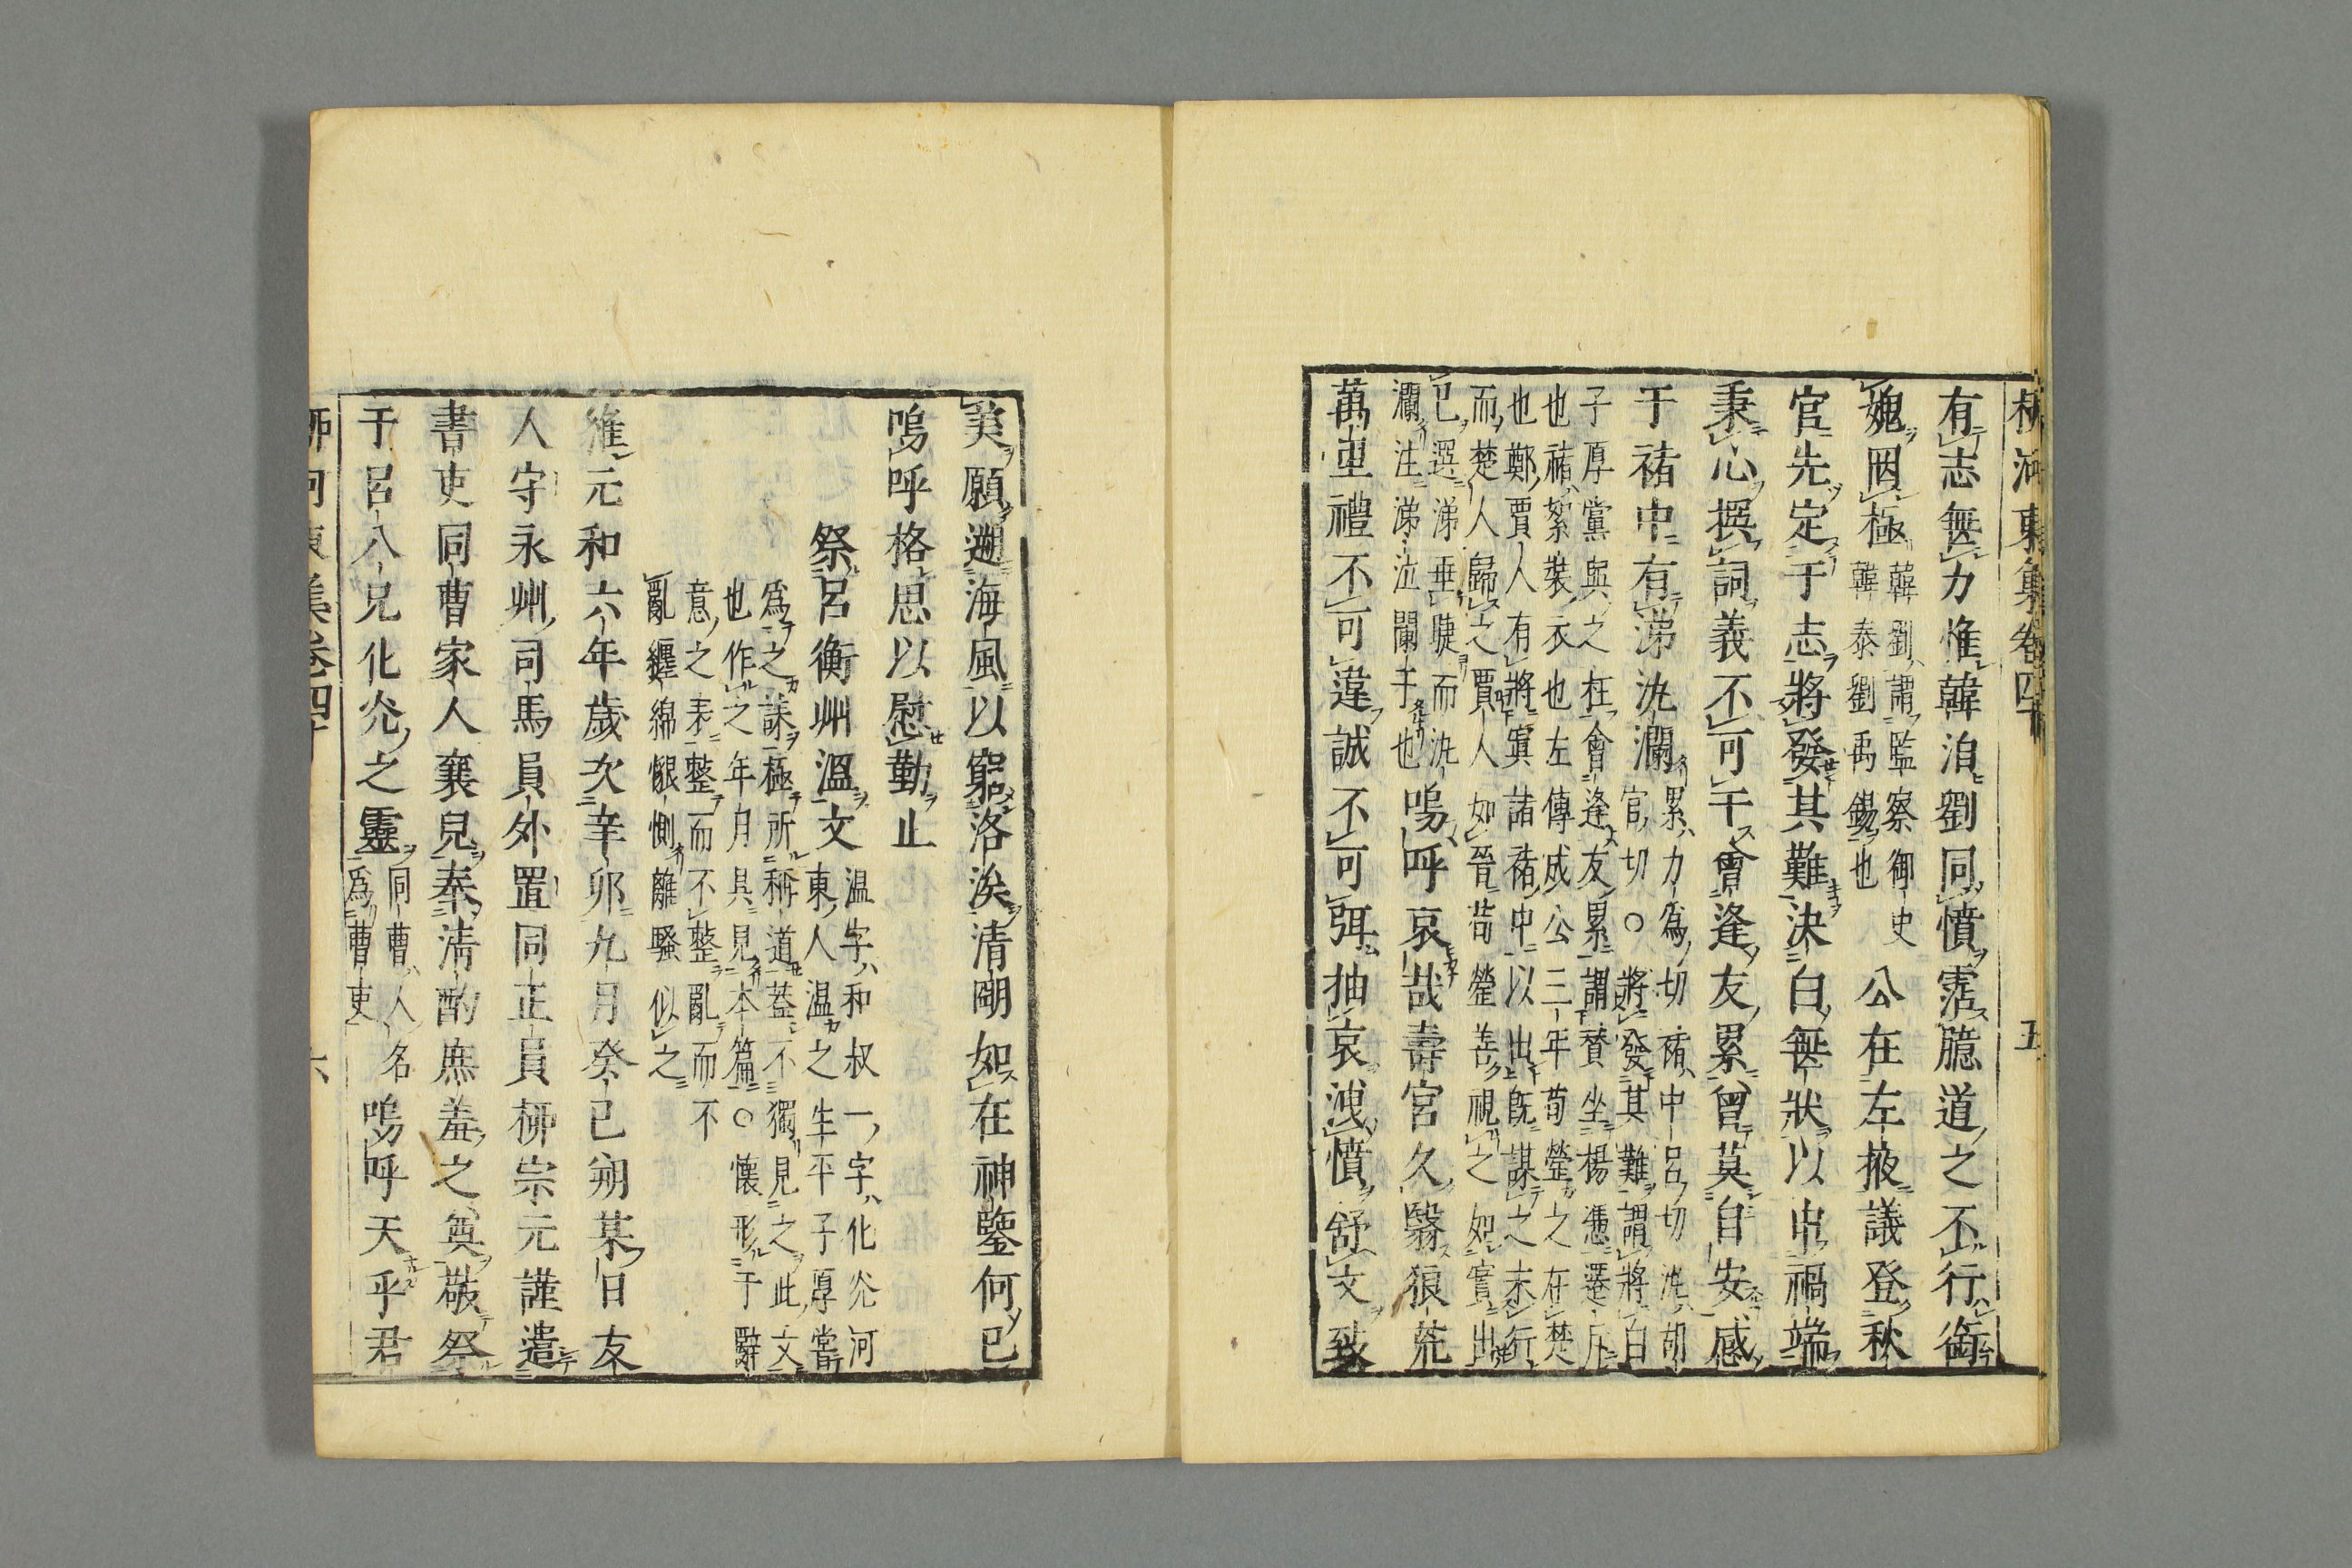 柳河東集卷四十 五
有志無力惟韓洎劉同憤霑臆道之不行銜
媿罔極韓劉謂監察御史
韓泰劉禹錫也公在左掖議登秋
官先定于志將發其難決白無狀以申禍端
秉心撰詞義不可干會逢友累曾莫自安感
于褚中有涕汍瀾累力為切褚中呂切汍胡
官切○將發其難謂將白
子厚黨與之枉會逢友累謂賛坐楊憑遷斥
也褚絮裝衣也左傳成公三年荀罃之在楚
也鄭賈人有將寘諸褚中以出既謀之未行
而楚人歸之賈人如晉荀罃善視之如實出
已選涕垂睫而汍
瀾注涕泣闌干也嗚呼哀哉壽宮久翳狼荒
萬重禮不可違誠不可弭抽哀洩憤舒文致
美願遡海風以窮洛涘清明如在神鑒何已
嗚呼格思以慰勤止
祭呂衡州溫文温字和叔一字化光河
東人温之生平子厚嘗
為之誄極所稱道葢不獨見之此文
也作之年月具見本篇○懷形于辭
意之表整而不整亂而不
亂纏綿懇惻離騷似之
維元和六年歲次辛卯九月癸巳朔某日友
人守永州司馬員外置同正員柳宗元謹遣
書吏同曹家人襄兒奉清酌庶羞之奠敬祭
于呂八兄化光之靈同曹人名
為曹吏嗚呼天乎君
柳河東集卷四十 六